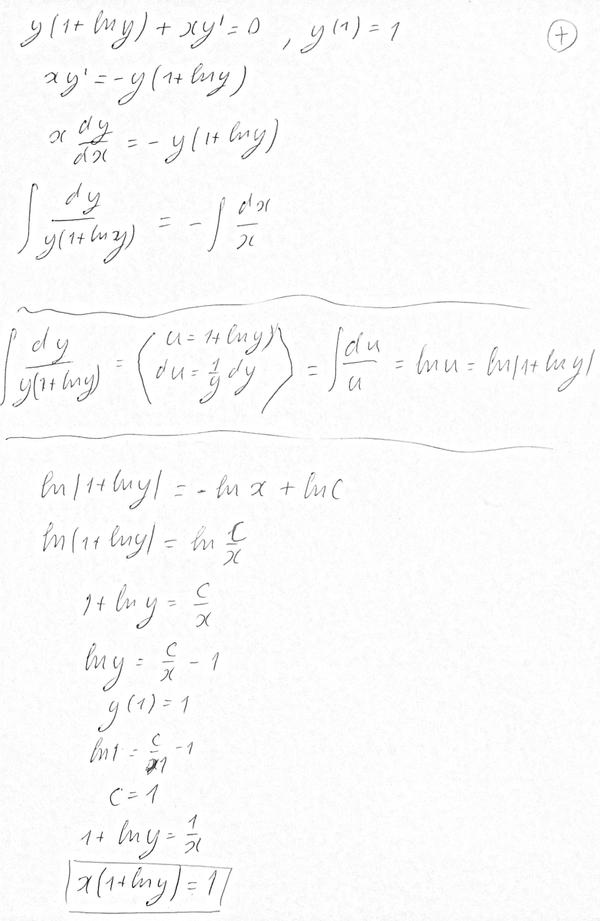 y(1+ln y) + xy' = 0 , y(1) = 1 (+)
xy' = -y(1+ln y)
x dy/dx = -y(1+ln y)
∫ dy/(y(1+ln y)) = -∫ dx/x
∫ dy/(y(1+ln y)) = ( u = 1+ln y) du = 1/y dy ) = ∫ du/u = ln u = ln|1+ln y|
ln|1+ln y| = -ln x + ln C
ln|1+ln y| = ln C/x
1+ ln y = C/x
ln y = C/x - 1
y(1) = 1
ln 1 = C/1 - 1
C = 1
1+ ln y = 1/x
x(1+ln y) = 1